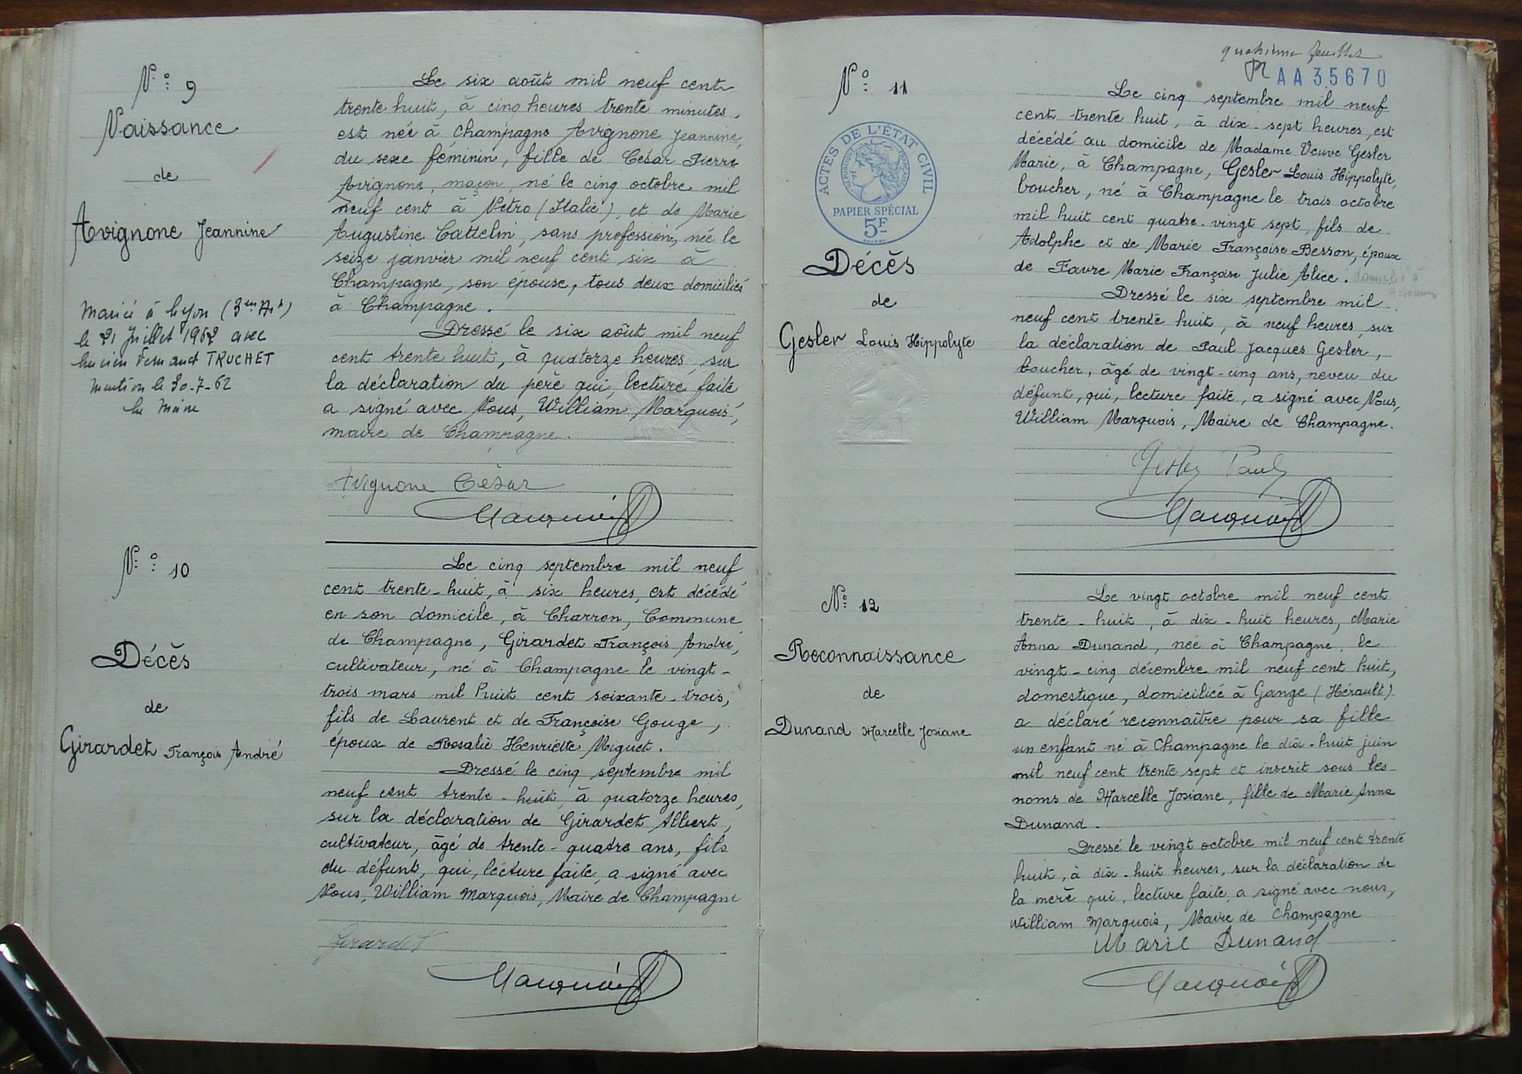 N° 9
Naissance
de
Avignone Jeannine
Marié à Lyon (3me Art)
le 21 juillet 1962 avec
Lucien Fernand TRUCHET
Mention le 30-7-62
Le Maire
Le six août mil neuf cent
trente huit, à cinq heures trente minutes,
est née à Champagne Avignone Jeannine,
du sexe féminin, fille de César Pierre
Avignone, maçon, né le cinq octobre mil
neuf cent à Netro (Italie), et de Marie
Augustine Cattelin, sans profession, née le
seize janvier mil neuf cent six à
Champagne, son épouse, tous deux domiciliés
à Champagne.
Dressé le six août mil neuf
cent trente huit, à quatorze heures, sur
la déclaration du père qui, lecture faite,
a signé avec Nous, William Marquois,
maire de Champagne.
Avignone César
Marquois
N° 10
Décès
de
Girardet François André
Le cinq septembre mil neuf
cent trente-huit, à six heures, est décédé
en son domicile, à Charron, Commune
de Champagne, Girardet François André,
cultivateur, né à Champagne le vingt-
trois mars mil huit cent soixante trois,
fils de Laurent et de Françoise Gouge,
époux de Rosalie Henriette Miguet.
Dressé le cinq septembre mil
neuf cent trente-huit, à quatorze heures,
sur la déclaration de Girardet Albert,
cultivateur, âgé de trente-quatre ans, fils
du défunt, qui, lecture faite, a signé avec
Nous, William Marquois, Maire de Champagne
Girardet
Marquois
quatrième feuillet
AA35670
N° 11
ACTES DE L'ÉTAT CIVIL
PAPIER SPÉCIAL
5F
Décès
de
Gesler Louis Hippolyte
Le cinq septembre mil neuf
cent trente huit, à dix-sept heures, est
décédé au domicile de Madame Veuve Gesler
Marie, à Champagne, Gesler Louis Hippolyte,
boucher, né à Champagne le trois octobre
mil huit cent quatre-vingt sept, fils de
Adolphe et de Marie Françoise Besson, époux
de Favre Marie Françoise Julie Alice. domicilié à
Dressé le six septembre mil
neuf cent trente huit, à neuf heures, sur
la déclaration de Paul Jacques Gesler,
boucher, âgé de vingt-cinq ans, neveu du
défunt, qui, lecture faite, a signé avec Nous,
William Marquois, Maire de Champagne.
Gesler Paul
Marquois
N° 12
Reconnaissance
de
Dunand Marcelle Josiane
Le vingt octobre mil neuf cent
trente-huit, à dix-huit heures, Marie
Anna Dunand, née à Champagne, le
vingt-cinq décembre mil neuf cent huit,
domestique, domiciliée à Gange (Hérault)
a déclaré reconnaître pour sa fille
un enfant né à Champagne le dix-huit juin
mil neuf cent trente sept et inscrit sous les
noms de Marcelle Josiane, fille de Marie Anna
Dunand.
Dressé le vingt octobre mil neuf cent trente
huit, à dix-huit heures, sur la déclaration de
la mère qui, lecture faite, a signé avec nous,
William Marquois, Maire de Champagne
Marie Dunand
Marquois